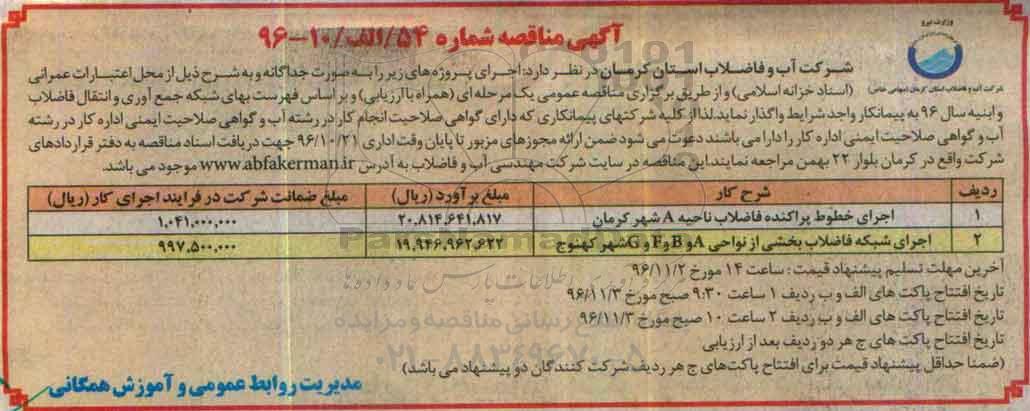 آگهی مناقصه شماره ۵۴/الف/۱۰-۹۶
وزارت نیرو
شرکت آب و فاضلاب استان کرمان (سهامی خاص)
شرکت آب و فاضلاب استان کرمان در نظر دارد: اجرای پروژه های زیر را به صورت جداگانه و به شرح ذیل از محل اعتبارات عمرانی
(اسناد خزانه اسلامی) و از طریق برگزاری مناقصه عمومی یک مرحله ای (همراه با ارزیابی) و بر اساس فهرست بهای شبکه جمع آوری و انتقال فاضلاب
و ابنیه سال ۹۶ به پیمانکار واجد شرایط واگذار نماید. لذا از کلیه شرکتهای پیمانکاری که دارای گواهی صلاحیت انجام کار در رشته آب و گواهی صلاحیت ایمنی اداره کار در رشته
آب و گواهی صلاحیت ایمنی اداره کار را دارا می باشند دعوت می شود ضمن ارائه مجوزهای مزبور تا پایان وقت اداری ۹۶/۱۰/۲۱ جهت دریافت اسناد مناقصه به دفتر قراردادهای
شرکت واقع در کرمان بلوار ۲۲ بهمن مراجعه نمایند. این مناقصه در سایت شرکت مهندسی آب و فاضلاب به آدرس www.abfakerman.ir موجود می باشد.
ردیف شرح کار مبلغ برآورد (ریال) مبلغ ضمانت شرکت در فرایند اجرای کار (ریال)
۱ اجرای خطوط پراکنده فاضلاب ناحیه A شهر کرمان ۲۰،۸۱۴،۶۴۱،۸۱۷ ۱،۰۴۱،۰۰۰،۰۰۰
۲ اجرای شبکه فاضلاب بخشی از نواحی A و B و F و G شهر کهنوج ۱۹،۹۴۶،۹۶۲،۶۲۲ ۹۹۷،۵۰۰،۰۰۰
آخرین مهلت تسلیم پیشنهاد قیمت: ساعت ۱۴ مورخ ۹۶/۱۱/۲
تاریخ افتتاح پاکت های الف و ب ردیف ۱ ساعت ۹:۳۰ صبح مورخ ۹۶/۱۱/۳
تاریخ افتتاح پاکت های الف و ب ردیف ۲ ساعت ۱۰ صبح مورخ ۹۶/۱۱/۳
تاریخ افتتاح پاکت های ج هر دو ردیف بعد از ارزیابی
(ضمنا حداقل پیشنهاد قیمت برای افتتاح پاکت‌های ج هر ردیف شرکت کنندگان دو پیشنهاد می باشد)
مدیریت روابط عمومی و آموزش همگانی